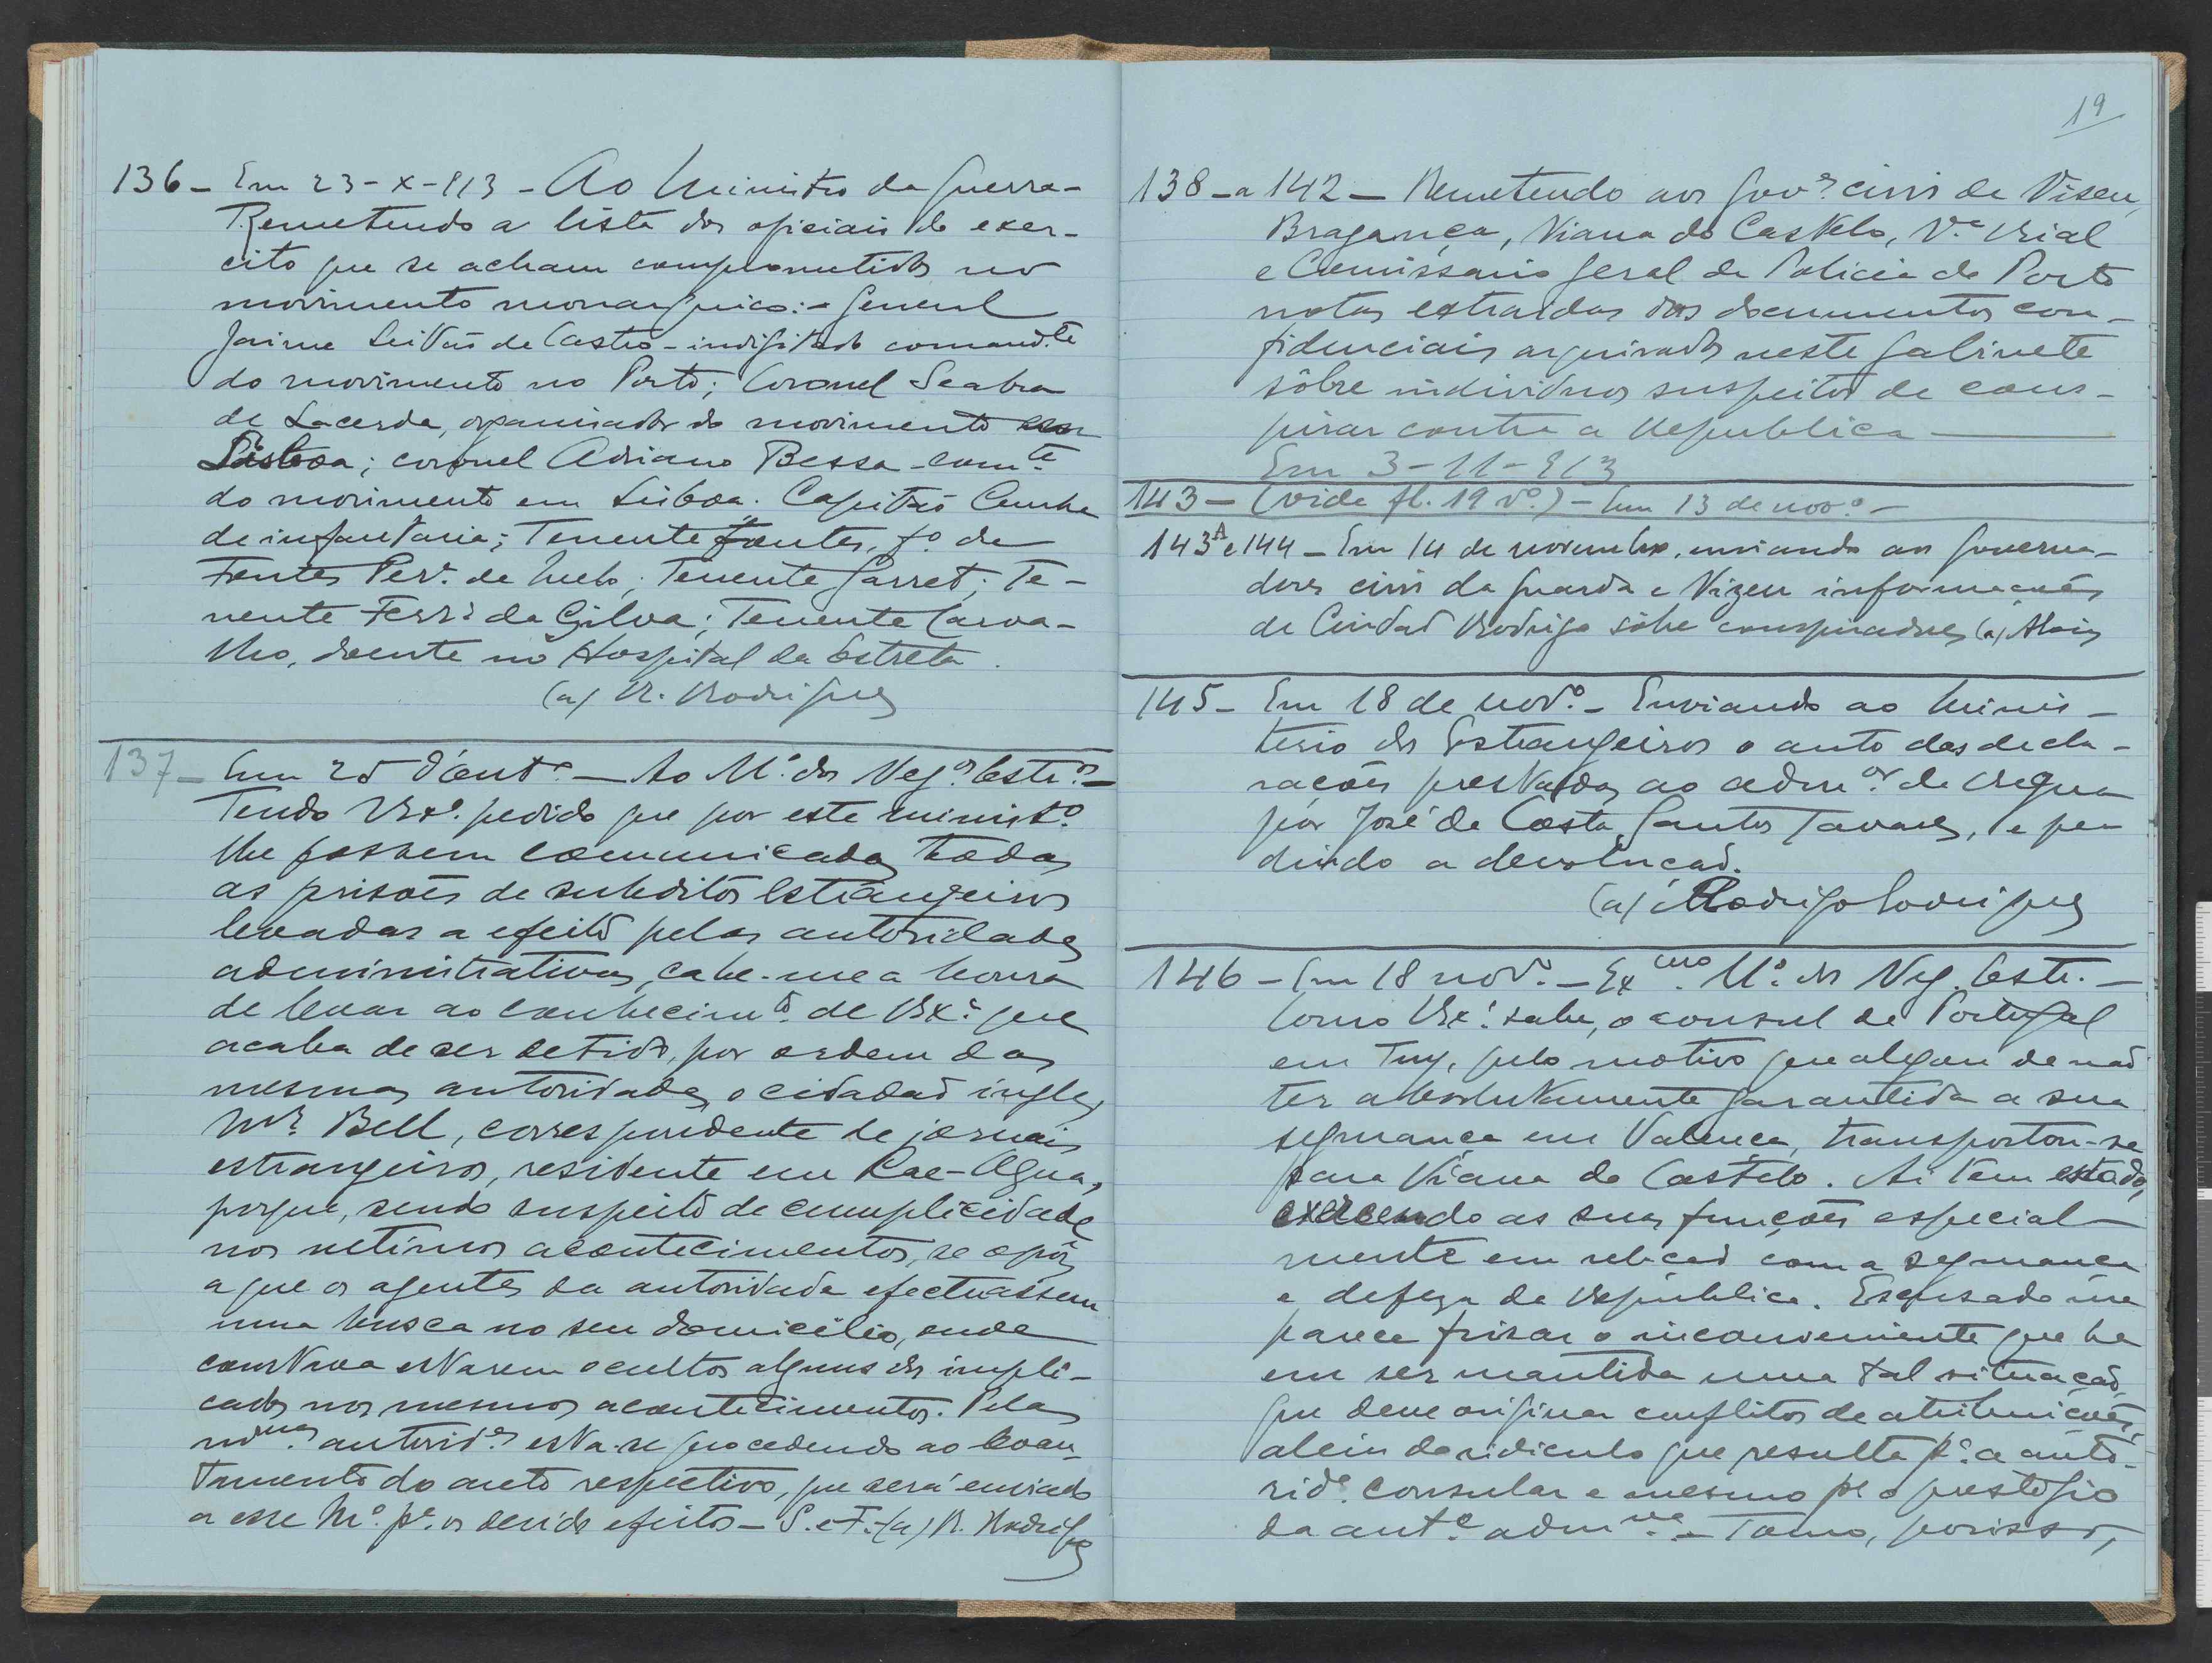 136 - Em 23-X-913 - Ao Ministro da Guerra -
Remetendo a lista dos oficiais do exer-
cito que se acham comprometidos no
movimento monarquico: - General
Jaime Leitão de Castro - indigitado comand.te
do movimento no Porto; Coronel Seabra
de Lacerda, organisador do movimento em
Lisboa; coronel Adriano Bessa - com.te
do movimento em Lisboa. Capitão Cunha
de infantaria; Tenente Fontes, fo. de
Fontes Per.a de Melo; Tenente Garret; Te-
nente Ferr.a da Silva; Tenente Carva-
lho, doente no Hospital da Estrela.
(a) R. Rodrigues
137 - Em 25 d'out.o - Ao M.o dos Neg.os Estr.os -
Tendo V.Ex.a pedido que por este minist.o
lhe fossem comunicadas todas
as prisões de subditos estrangeiros
levadas a efeito pelas autoridades
administrativas, cabe-me a honra
de levar ao conhecim.to de V.Ex.a que
acaba de ser detido, por ordem das
mesmas autoridades, o cidadão inglez
Mr. Bell, correspondente de jornais
estrangeiros, residente em Rae-Agua,
porque, sendo suspeito de cumplicidade
nos ultimos acontecimentos, se opôz
a que os agentes da autoridade efectuassem
uma busca no seu domicilio, onde
constava estarem ocultos alguns dos impli-
cados nos mesmos acontecimentos. Pelas
m.mas autorid.es está-se procedendo ao levan-
tamento do auto respectivo, que será enviado
a esse M.o p.a os devidos efeitos - S. e F. - (a) R. Rodrigues
19
138 - a 142 - Remetendo aos gov.es civis de Viseu,
Bragança, Viana do Castelo, V.a Rial
e Comissario geral de Policia do Porto
notas extraidas dos documentos con-
fidenciais arquivados neste gabinete
sôbre individuos suspeitos de cons-
pirar contra a Republica
Em 3-11-913
143 - (vide fl. 19 v.o) - Em 13 de nov.o -
143A e 144 - Em 14 de novembro, enviando aos governa-
dores civis da Guarda e Vizeu informações
de Ciudad Rodrigo sôbre conspiradores (a)
145 - Em 18 de nov.o - Enviando ao Minis-
terio dos Estrangeiros o auto das decla-
rações prestadas ao adm.or da Regua
por José da Costa Santos Tavares, e pe-
dindo a devolução.
(a) Rodrigo Rodrigues
146 - Em 18 nov.o - Ex.mo M.o dos Neg. Estr. -
Como V.Ex.a sabe, o consul de Portugal
em Tuy, pelo motivo que alegou de não
ter absolutamente garantida a sua
segurança em Valença, transportou-se
para Viana do Castelo. Ai tem estado,
exercendo as suas funções especial-
mente em relação com a segurança
e defeza da Republica. Escusado me
parece frisar o inconveniente que ha
em ser mantida uma tal situação,
que deve originar conflitos de atribuições,
alem do ridiculo que resulta p.a a auto-
rid.e consular e mesmo p.a o prestigio
da aut.e adm.va - Tomo, porisso,